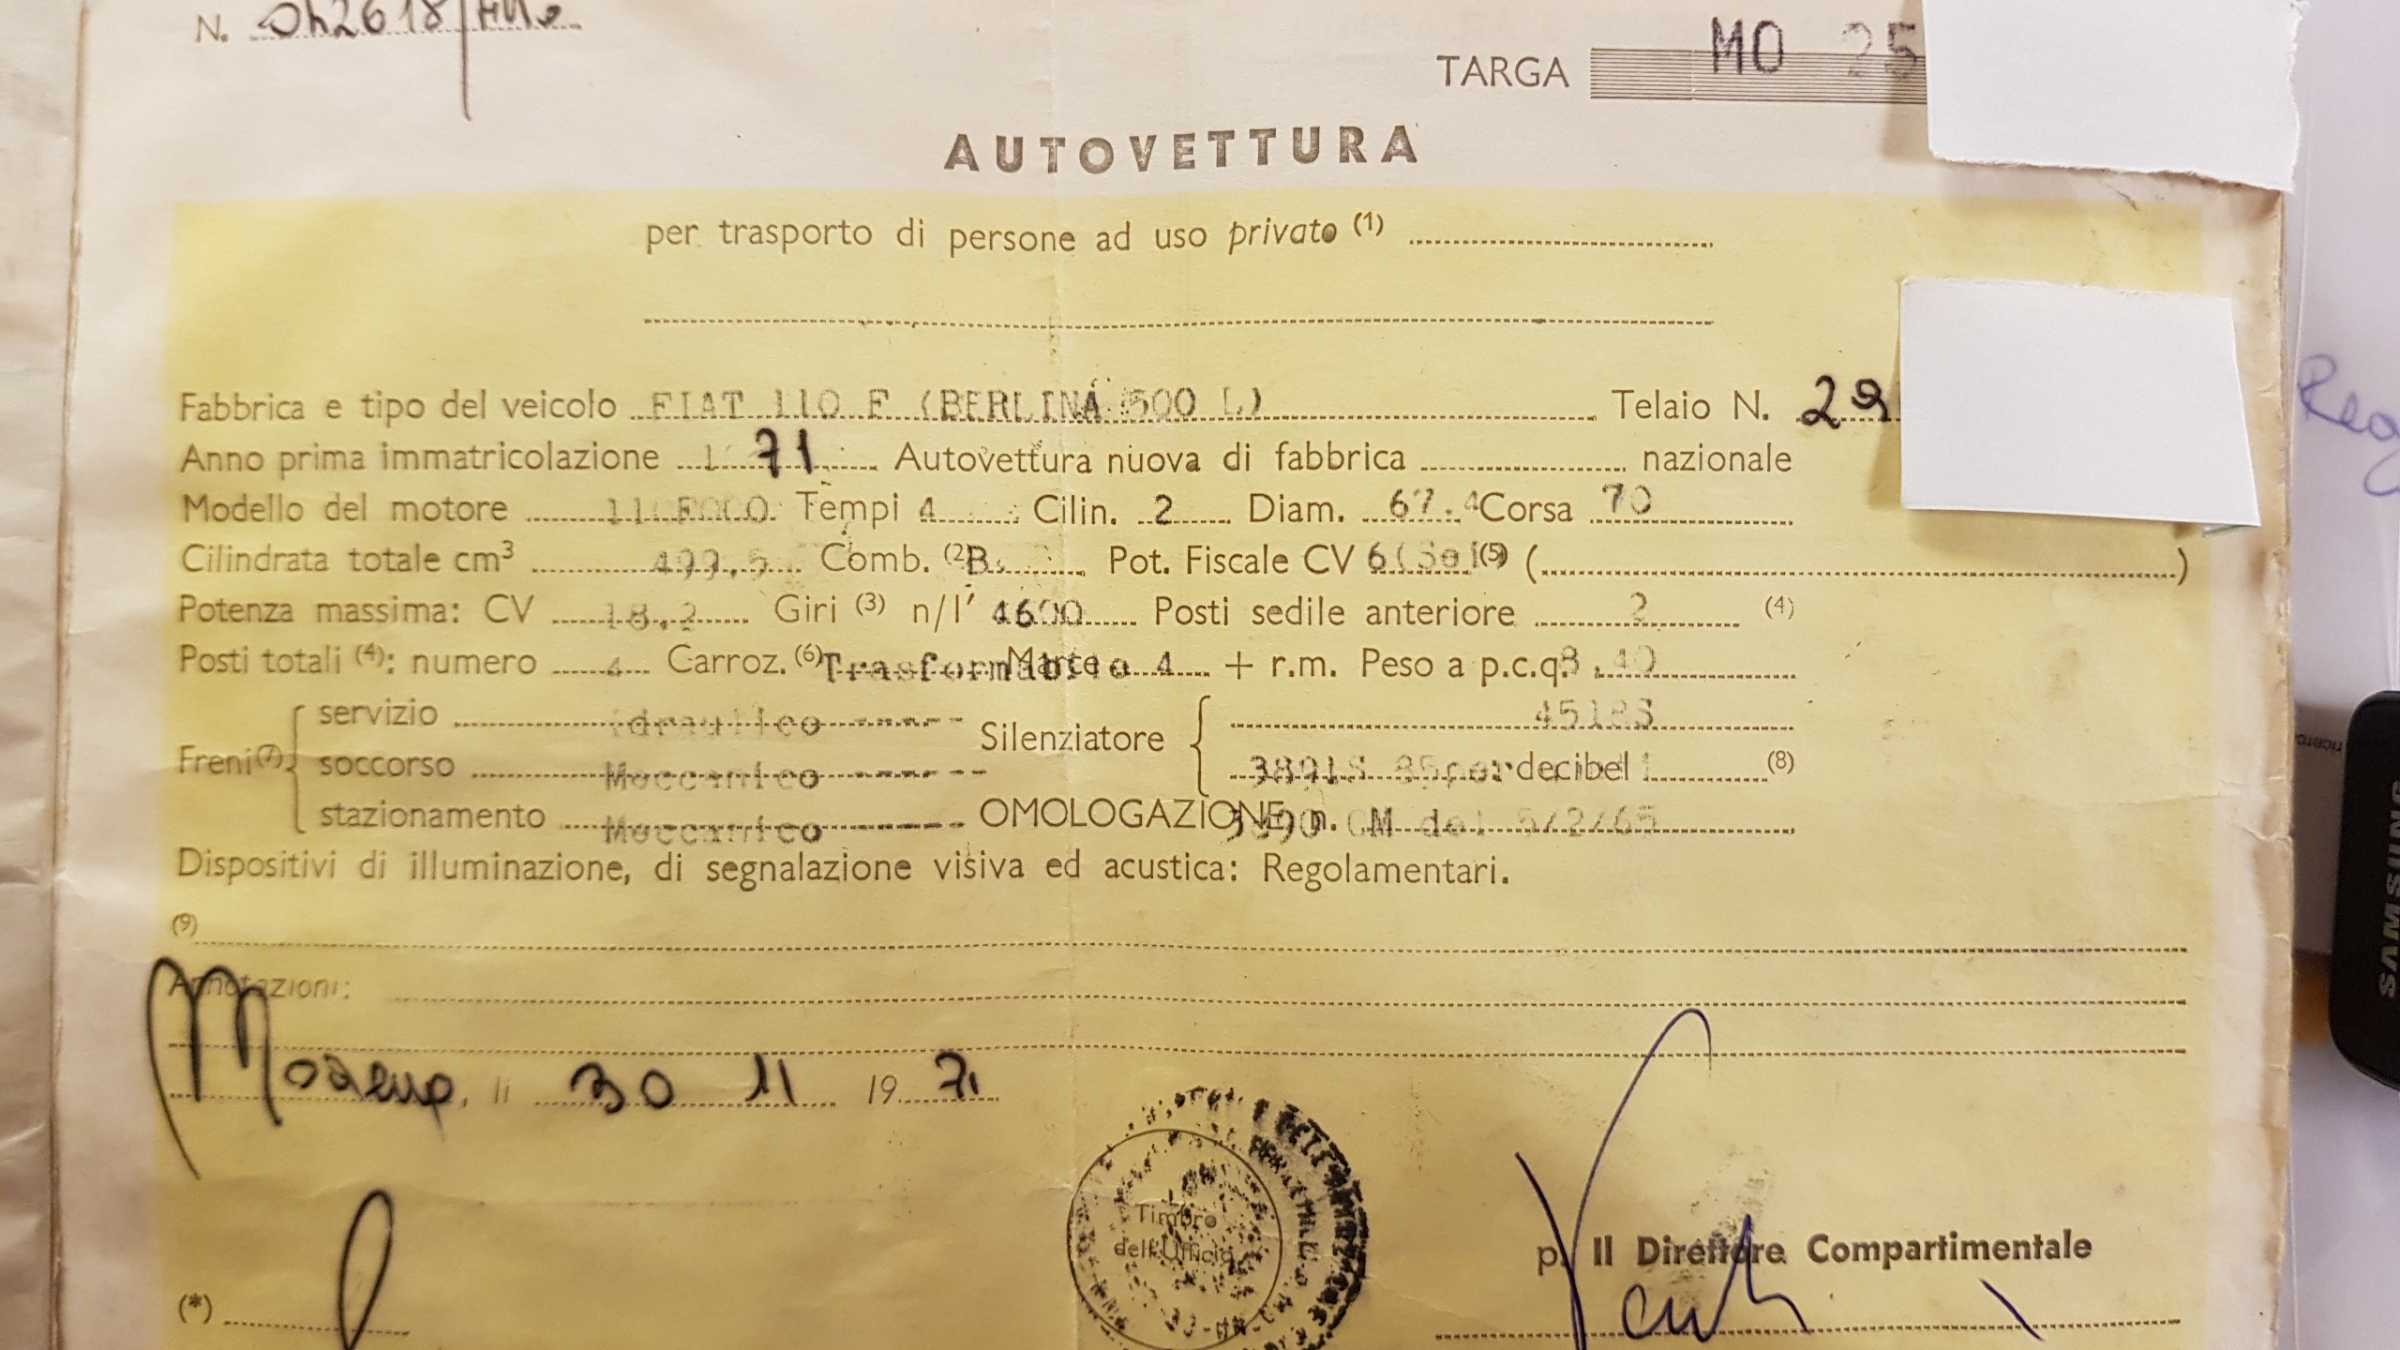 N.
TARGA MO 25
AUTOVETTURA
per trasporto di persone ad uso privato (1)
Fabbrica e tipo del veicolo FIAT 110 F (BERLINA 500 L) Telaio N. 29
Anno prima immatricolazione 1 71 Autovettura nuova di fabbrica nazionale
Modello del motore 110F000 Tempi 4 Cilin. 2 Diam. 67.4 Corsa 70
Cilindrata totale cm³ 499,5 Comb. (2) B. Pot. Fiscale CV 6(Sei) (5) ( )
Potenza massima: CV 18,2 Giri (3) n/1' 4600 Posti sedile anteriore 2 (4)
Posti totali (4): numero 4 Carroz. (6) Trasformabile Marce 4 + r.m. Peso a p.c.q. 8.40
Freni (7) { servizio idraulico ----- Silenziatore { 451RS
soccorso Meccanico ------ 3891S 85 per decibel (8)
stazionamento Meccanico ----- OMOLOGAZIONE n. OM del 5/2/65
Dispositivi di illuminazione, di segnalazione visiva ed acustica: Regolamentari.
(9)
Annotazioni:
Modena, li 30 11 1971
Timbro
dell'Ufficio
p. Il Direttore Compartimentale
(*)
Reg
SAMSUNG